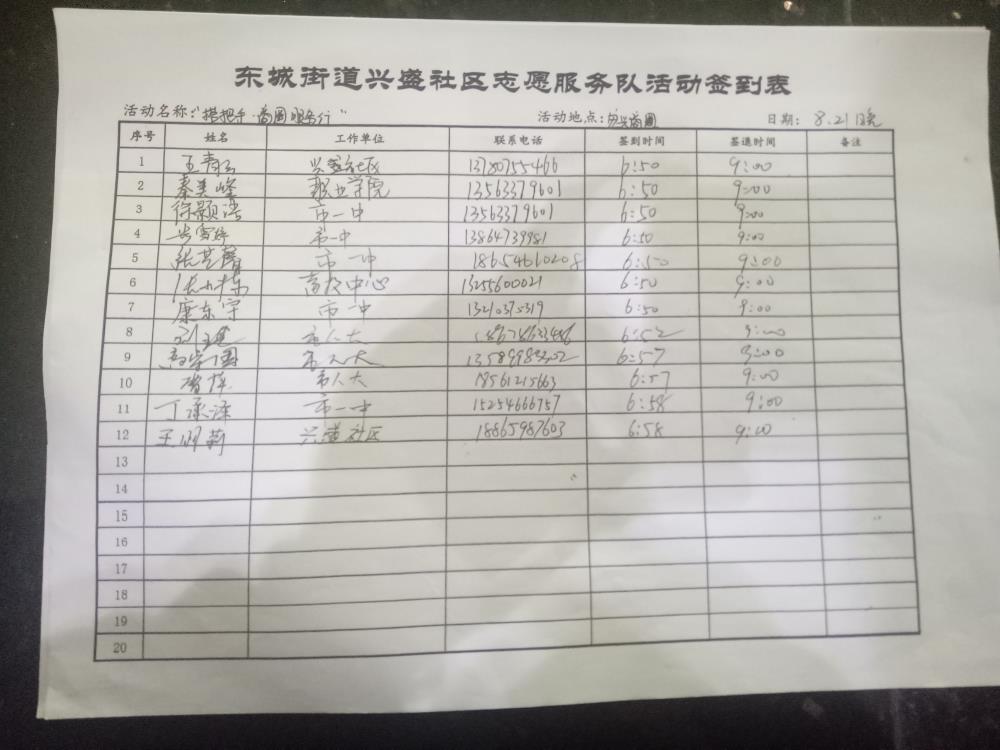 东城街道兴盛社区志愿服务队活动签到表
活动名称:"搭把手·商圈服务行" 活动地点: 商圈 日期: 8.21晚
序号 姓名 工作单位 联系电话 签到时间 签退时间 备注
1 王青云 兴盛社区 13780755466 6:50 9:00
2 秦美峰 职业学院 13563379601 6:50 9:00
3 徐颢 市一中 13563379601 6:50 9:00
4 市一中 13864739981 6:50 9:00
5 张 市一中 18654660208 6:50 9:00
6 张 中心 13255600021 6:50 9:00
7 康东宇 市一中 6:50 9:00
8 市人大 6:52 9:00
9 市人大 6:57 9:00
10 市人大 18561215663 6:57 9:00
11 丁承泽 市一中 15254666757 6:58 9:00
12 王明莉 兴盛社区 18865987603 6:58 9:00
13
14
15
16
17
18
19
20